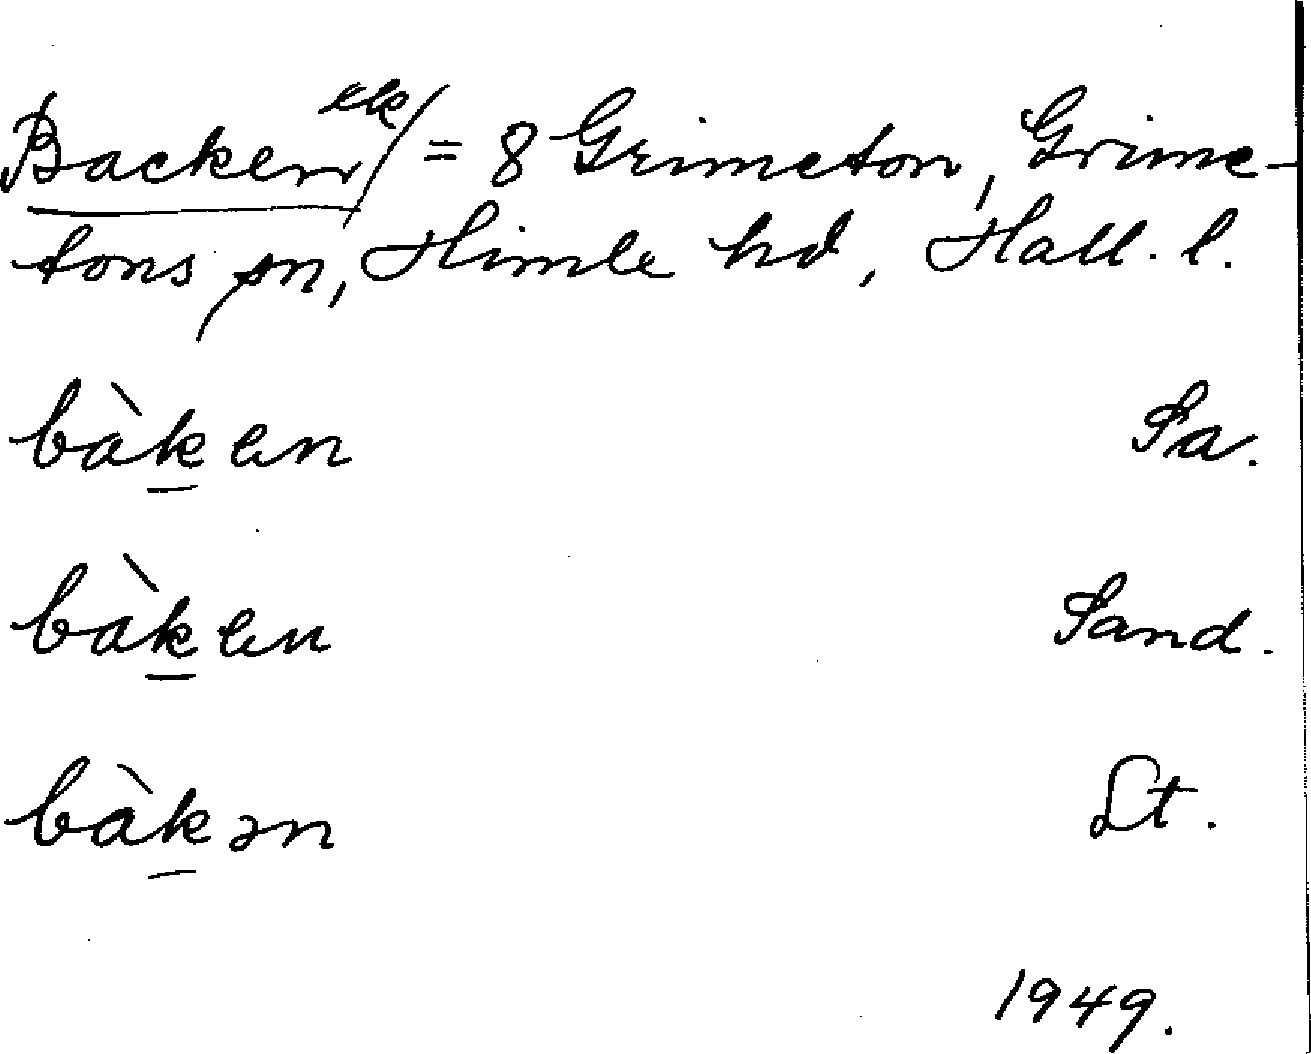 Backen ek/ = 8 Grimeton, Grime-
tons sn, Himle hd, Hall. l.
bàk̲en Sa.
bàk̲en Sand.
bàk̲ən St.
1949.